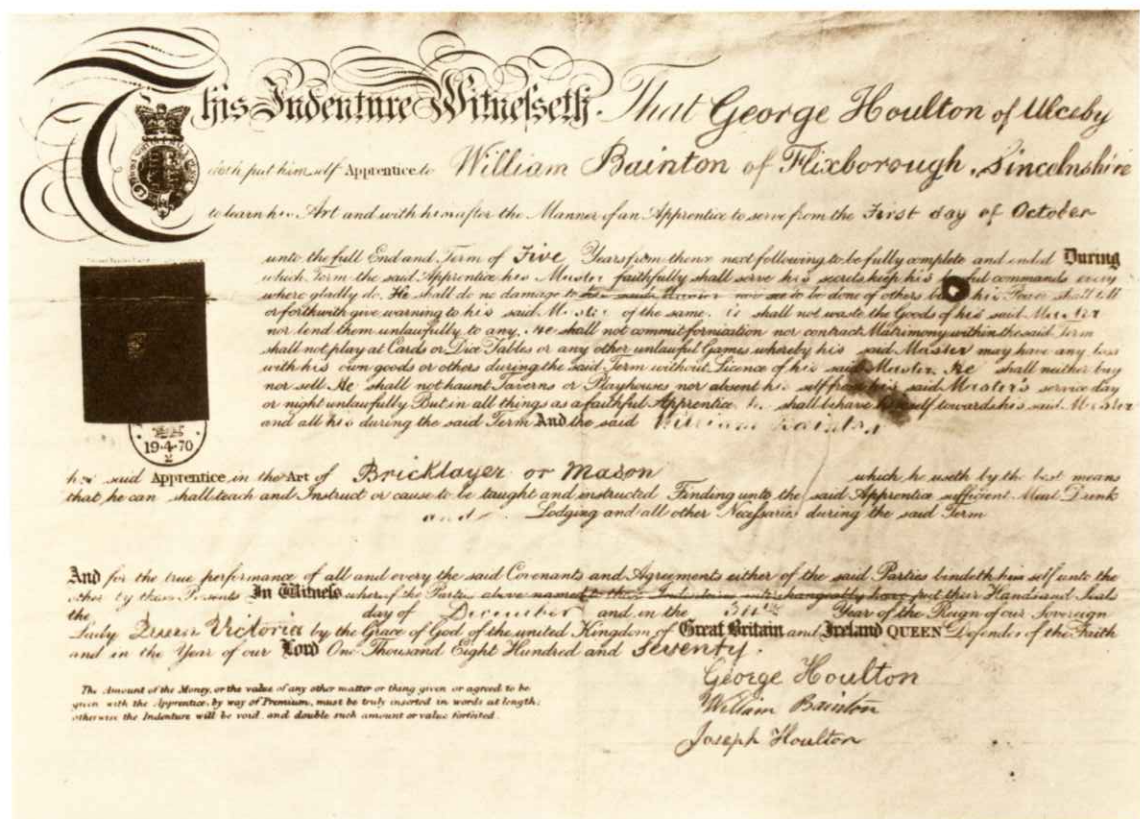 This Indenture Witnesseth. That George Houlton of Ulceby
doth put himself Apprentice to William Bainton of Flixborough, Lincolnshire
to learn his Art and with him after the Manner of an Apprentice to serve from the First day of October
unto the full End and Term of Five Years from thence next following to be fully complete and ended During
which Term the said Apprentice his Master faithfully shall serve his secrets keep his lawful commands every
where gladly do. He shall do no damage to his said Master nor see to be done of others but his Power shall tell
or forthwith give warning to his said Master of the same. He shall not waste the Goods of his said Master
nor lend them unlawfully to any. He shall not commit fornication nor contract Matrimony within the said Term
shall not play at Cards or Dice Tables or any other unlawful Games whereby his said Master may have any loss
with his own goods or others during the said Term without Licence of his said Master. He shall neither buy
nor sell. He shall not haunt Taverns or Playhouses nor absent himself from his said Master's service day
or night unlawfully But in all things as a faithful Apprentice he shall behave himself towards his said Master
and all his during the said Term And the said William Bainton
19·4·70
his said Apprentice in the Art of Bricklayer or Mason which he useth by the best means
that he can shall teach and Instruct or cause to be taught and instructed Finding unto the said Apprentice sufficient Meat Drink
and Lodging and all other Necessaries during the said Term
And for the true performance of all and every the said Covenants and Agreements either of the said Parties bindeth himself unto the
other by these Presents In Witness whereof the Parties above named to these Indentures interchangeably have put their Hands and Seals
the day of December and in the Year of the Reign of our Sovereign
Lady Queen Victoria by the Grace of God of the united Kingdom of Great Britain and Ireland QUEEN Defender of the Faith
and in the Year of our Lord One Thousand Eight Hundred and Seventy.
George Houlton
William Bainton
Joseph Houlton
The Amount of the Money, or the value of any other matter or thing given or agreed to be
given with the Apprentice, by way of Premium, must be truly inserted in words at length;
otherwise the Indenture will be void, and double such amount or value forfeited.